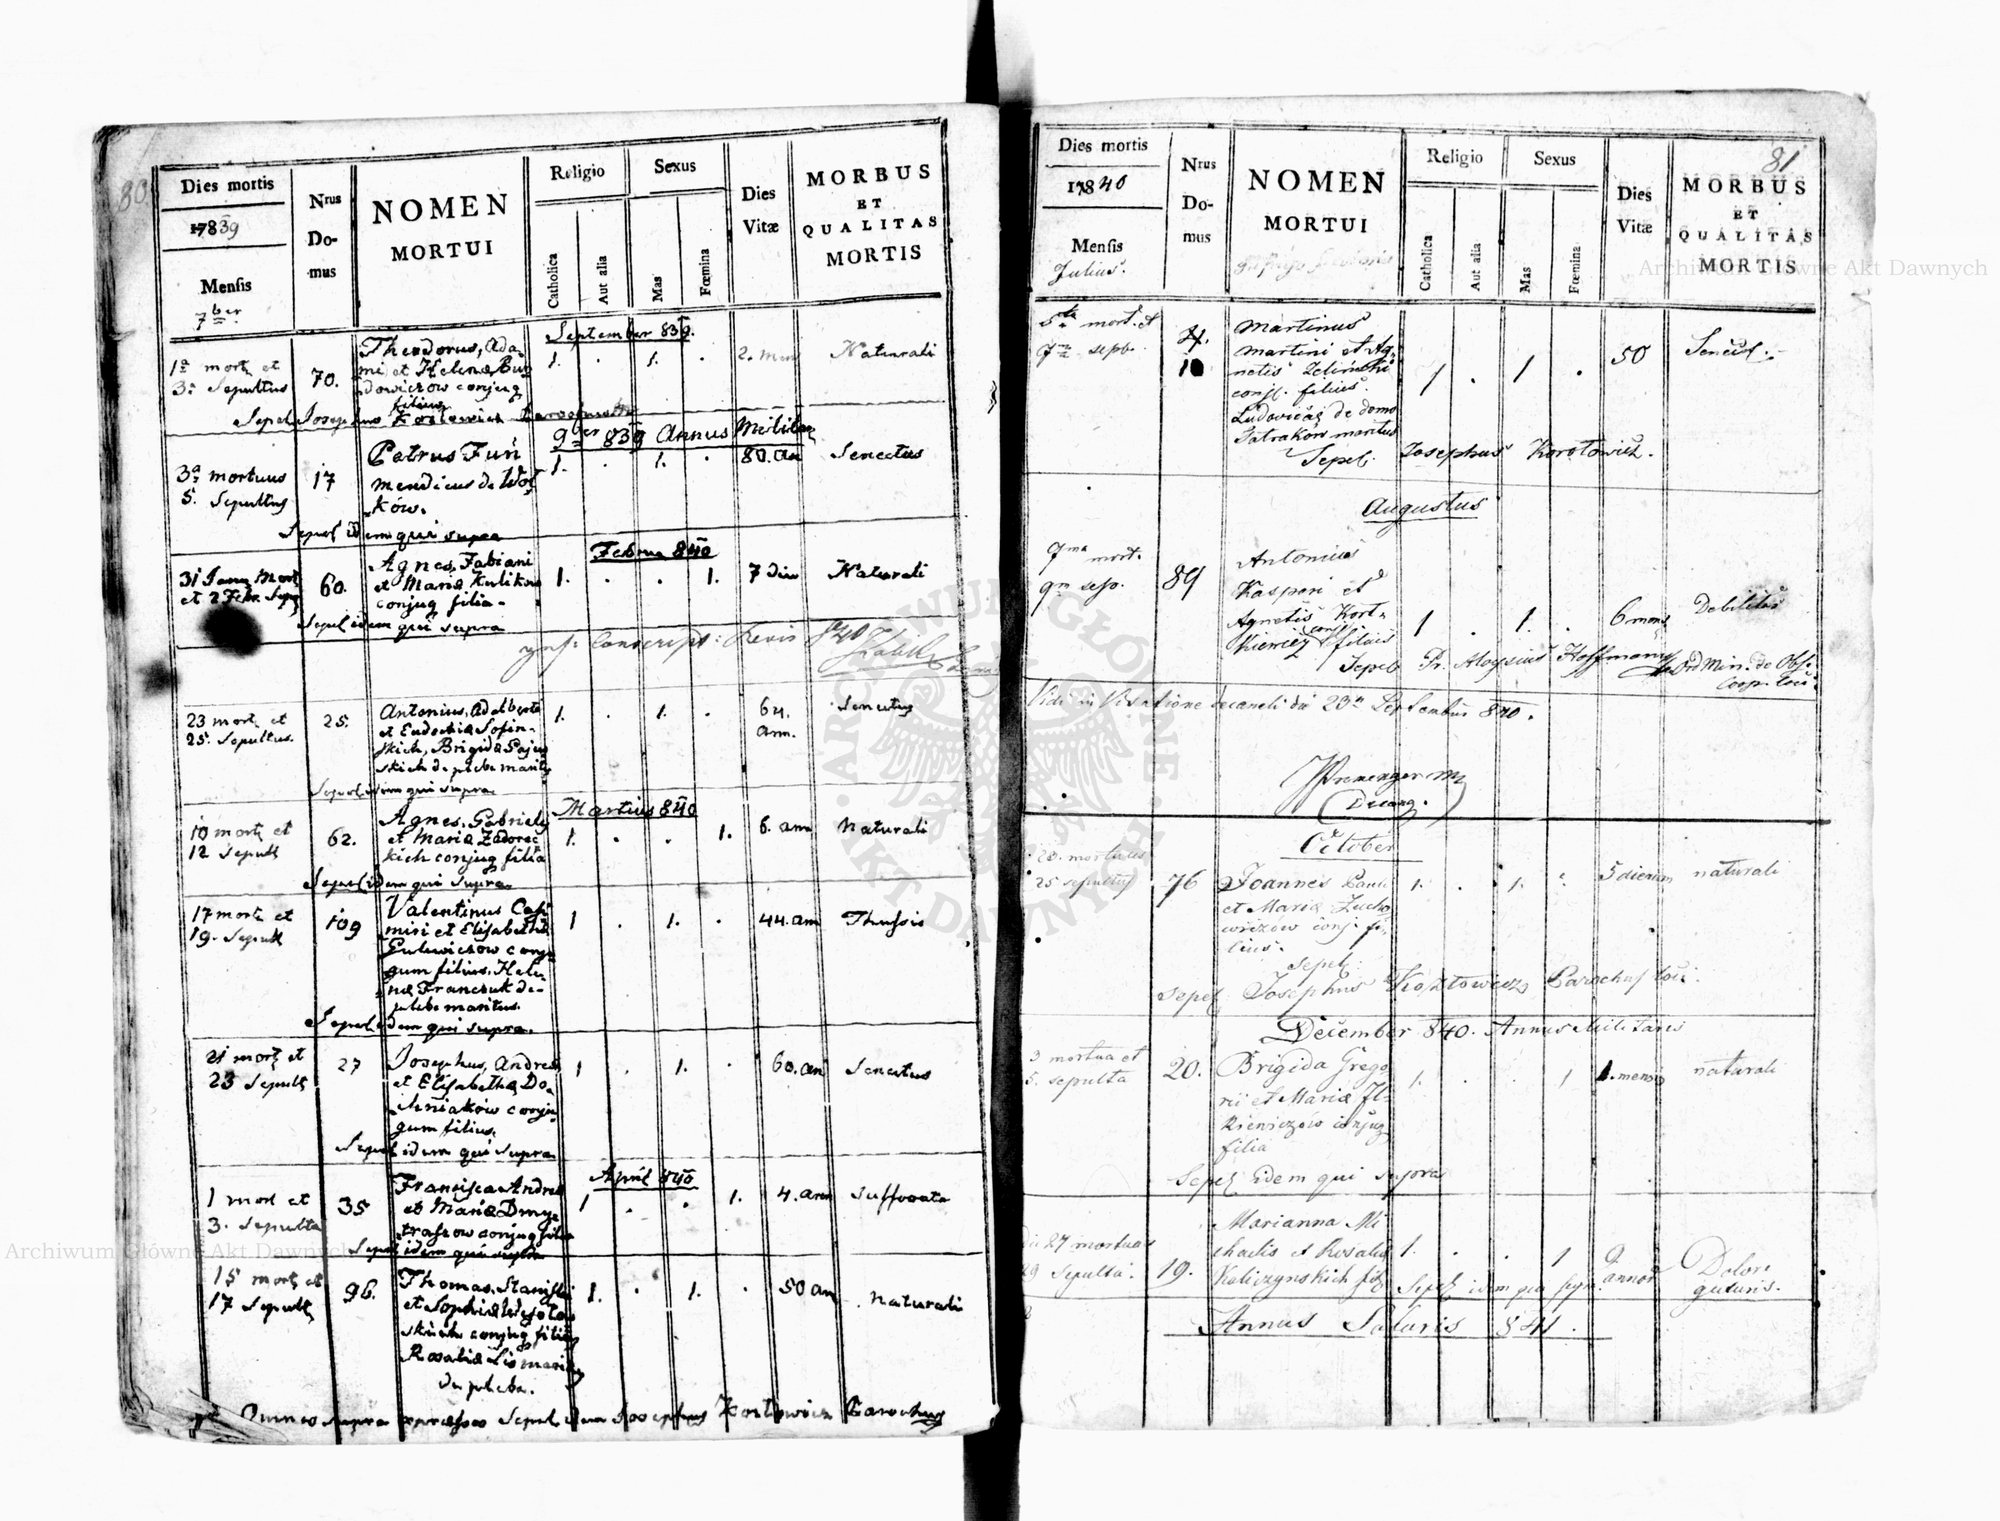 80
Dies mortis
1839
Mensis
7ber
Nrus
Do-
mus
NOMEN
MORTUI
Religio
Catholica
Aut alia
Sexus
Mas
Fœmina
Dies
Vitæ
MORBUS
ET
QUALITAS
MORTIS
September 839.
1a mort et
3a Sepultus
70.
Theodorus, Ada-
mi et Helena
conjug
filius
1. . 1. .
2. men
Naturali
9ber 839 Annus Militar
3a mortuus
5. Sepultus
17
Petrus Fur
mendicus de Woł
ków.
1. . 1. .
80. an
Senectus
Sepel idem qui supra
Febru 840
31 Janu Mort
et 2 Febr. Sep
60.
Agnes, Fabiani
et Maria Kulikow
conjug filia.
1. . . 1.
7 dier
Naturali
Sepel idem qui supra
23 mort et
25. Sepultus.
25.
Antonius, Adalberti
et Eudochia Sofin-
skich, Brigida
skich de plebe marit
1. . 1. .
64.
ann.
Senectus
Sepel idem qui supra
Martius 840
10 mort et
12 Sepult
62.
Agnes, Gabrielis
et Maria Zadorec
kich conjug filia
1. . . 1.
6. ann
Naturali
Sepel idem qui supra
17 mort et
19. Sepult
109
Valentinus Casi
miri et Elisabetha
conju
gum filius. Hele
na Franczuk de
plebe maritus.
1 . 1. .
44. ann
Thussis
Sepel idem qui supra.
21 mort et
23 Sepult
27
Josephus, Andrea
et Elisabetha Do-
conju
gum filius.
1 . 1. .
60. an
Senectus
Sepel idem qui supra
April 840
1 mort et
3. Sepulta
35
Francisca Andrea
et Maria Dmy-
conjug filia
1 . . 1.
4. ann
Suffocata
Sepel idem qui supra
15 mort et
17 Sepult
96.
Thomas, Stanislai
et Sophia
skich conjug filius
Rosalia Lis marit
de plebe.
1. . 1. .
50 an
Naturali
supra expressos Sepel idem Josephus Parochus
81
Dies mortis
1840
Mensis
Julius.
Nrus
Do-
mus
NOMEN
MORTUI
Religio
Catholica
Aut alia
Sexus
Mas
Fœmina
Dies
Vitæ
MORBUS
ET
QUALITAS
MORTIS
5ta mort. et
7ma sepb.
10
Martinus
Martini et Ag-
netis Zelinski
conj. filius.
Ludovica de domo
Jatraków maritus
1 . 1 .
50
Senect.
Sepel. Josephus
Augustus
7ma mort.
9na sep.
89
Antonius
Kasperi et
Agnetis Kort-
kiewicz conj filius
1 . 1. .
6 mens
Debilitas
Sepel Pr. Aloysius Hoffmann Ord Min. de Obs.
Coop. loci.
Vidi in Visitatione decanali die 23a Septembris 840.
Decang.
October
23. mortuus
25 sepultus
76
Joannes Pauli
et Maria Zucho
wiczów conj. fi-
lius.
1. . 1. .
5 dierum
naturali
Sepel:
Sepel Josephus Parochus loci.
December 840. Annus Militaris
3 mortua et
5. sepulta
20.
Brigida Grego
rii et Maria Il-
kiewiczów conjug
filia
1. . . 1
1. mensis
naturali
Sepel idem qui supra
die 27 mortua
29 Sepulta.
19.
Marianna Mi
chaelis et Rosalia
Kaliczynskich fil
1. . . 1
9
annor
Dolore
guturis.
Sepel idem qui supr.
Annus Salutis 841.
Archiwum Główne Akt Dawnych
Archiwum Główne Akt Dawnych
ARCHIWUM GŁÓWNE
AKT DAWNYCH